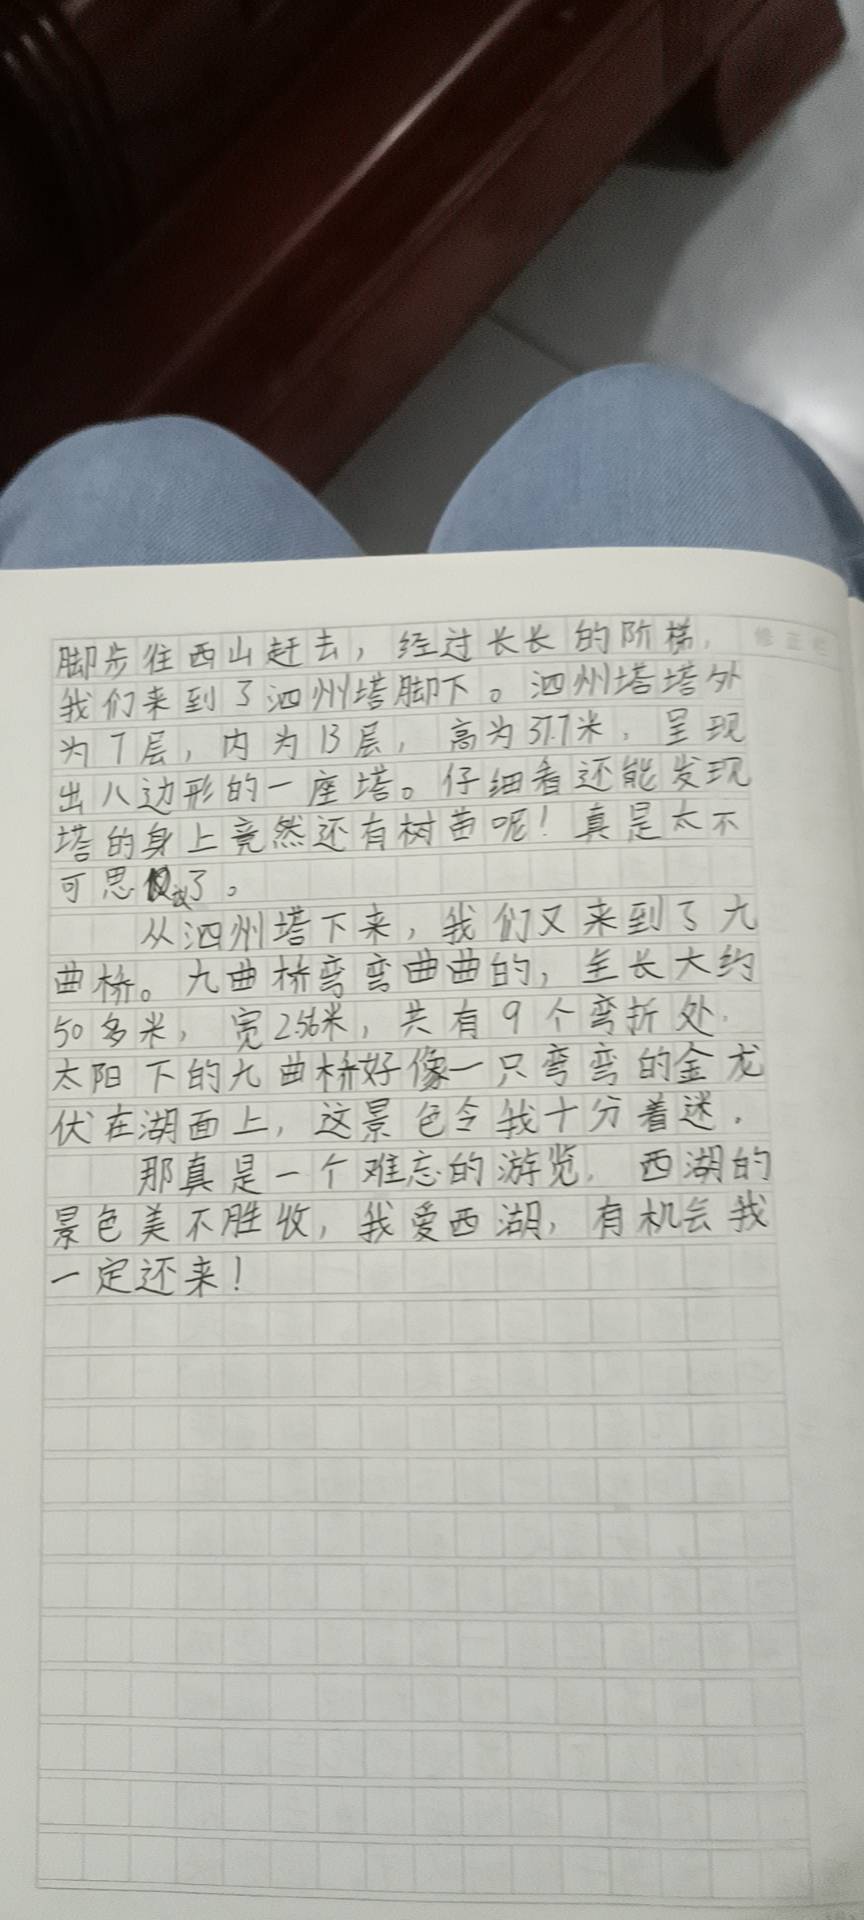 修正栏
脚步往西山赶去，经过长长的阶梯，
我们来到了泗州塔脚下。泗州塔塔外
为7层，内为13层，高为37.7米，呈现
出八边形的一座塔。仔细看还能发现
塔的身上竟然还有树苗呢！真是太不
可思议了。
从泗州塔下来，我们又来到了九
曲桥。九曲桥弯弯曲曲的，全长大约
50多米，宽2.56米，共有9个弯折处，
太阳下的九曲桥好像一只弯弯的金龙
伏在湖面上，这景色令我十分着迷。
那真是一个难忘的游览，西湖的
景色美不胜收，我爱西湖，有机会我
一定还来！